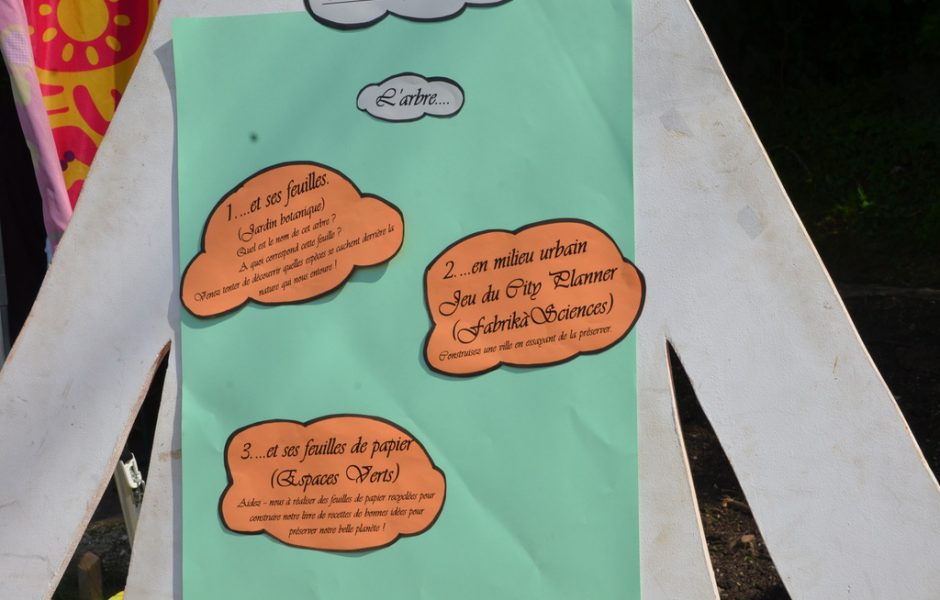 L'arbre....
1. ...et ses feuilles.
(Jardin botanique)
Quel est le nom de cet arbre ?
A quoi correspond cette feuille ?
Venez tenter de découvrir quelles espèces se cachent derrière la
nature qui nous entoure !
2. ...en milieu urbain
Jeu du City Planner
(FabrikàSciences)
Construisez une ville en essayant de la préserver.
3. ...et ses feuilles de papier
(Espaces Verts)
Aidez - nous à réaliser des feuilles de papier recyclées pour
construire notre livre de recettes de bonnes idées pour
préserver notre belle planète !